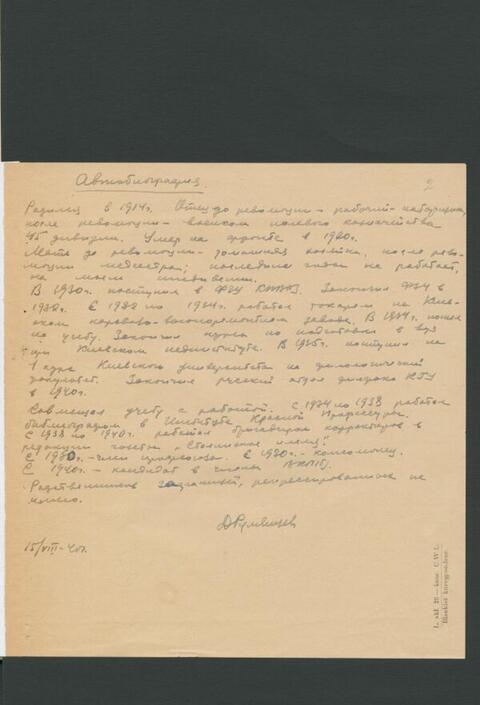 2
Автобиография.
Родился в 1914г. Отец до революции – рабочий-
после революции – военком полевого казначейства
45 дивизии. Умер на фронте в 1920г.
Мать до революции – домашняя хозяйка, после рево-
люции медсестра, последние годы не работает,
на моем иждивении.
В 1930г. поступил в ФЗУ Закончил ФЗУ в
1932г. С 1932 по 1934г. работал токарем на Киев-
ском паровозо-вагоноремонтном заводе. В 1934г. пошел
на учебу. Закончил курсы по подготовке в вуз
при Киевском пединституте. В 1935г. поступил на
1 курс Киевского университета на филологический
факультет. Закончил русский отдел филфака КГУ
в 1940г.
Совмещал учебу с работой. с 1934 по 1938 работал
библиографом в Институте Красной Профессуры.
С 1938 по 1940г. работал бригадиром корректоров в
редакции газеты „Сталинское племя".
С 1930г. – член профсоюза. С 1930г. – комсомолец.
С 1940г. – кандидат в члены ВКП(б).
Родственников заграницей, репрессированных не
имею.
15/VIII – 40г.
L. skł. 26 — kanc. U.W.L.
Blankiet korespondenc.